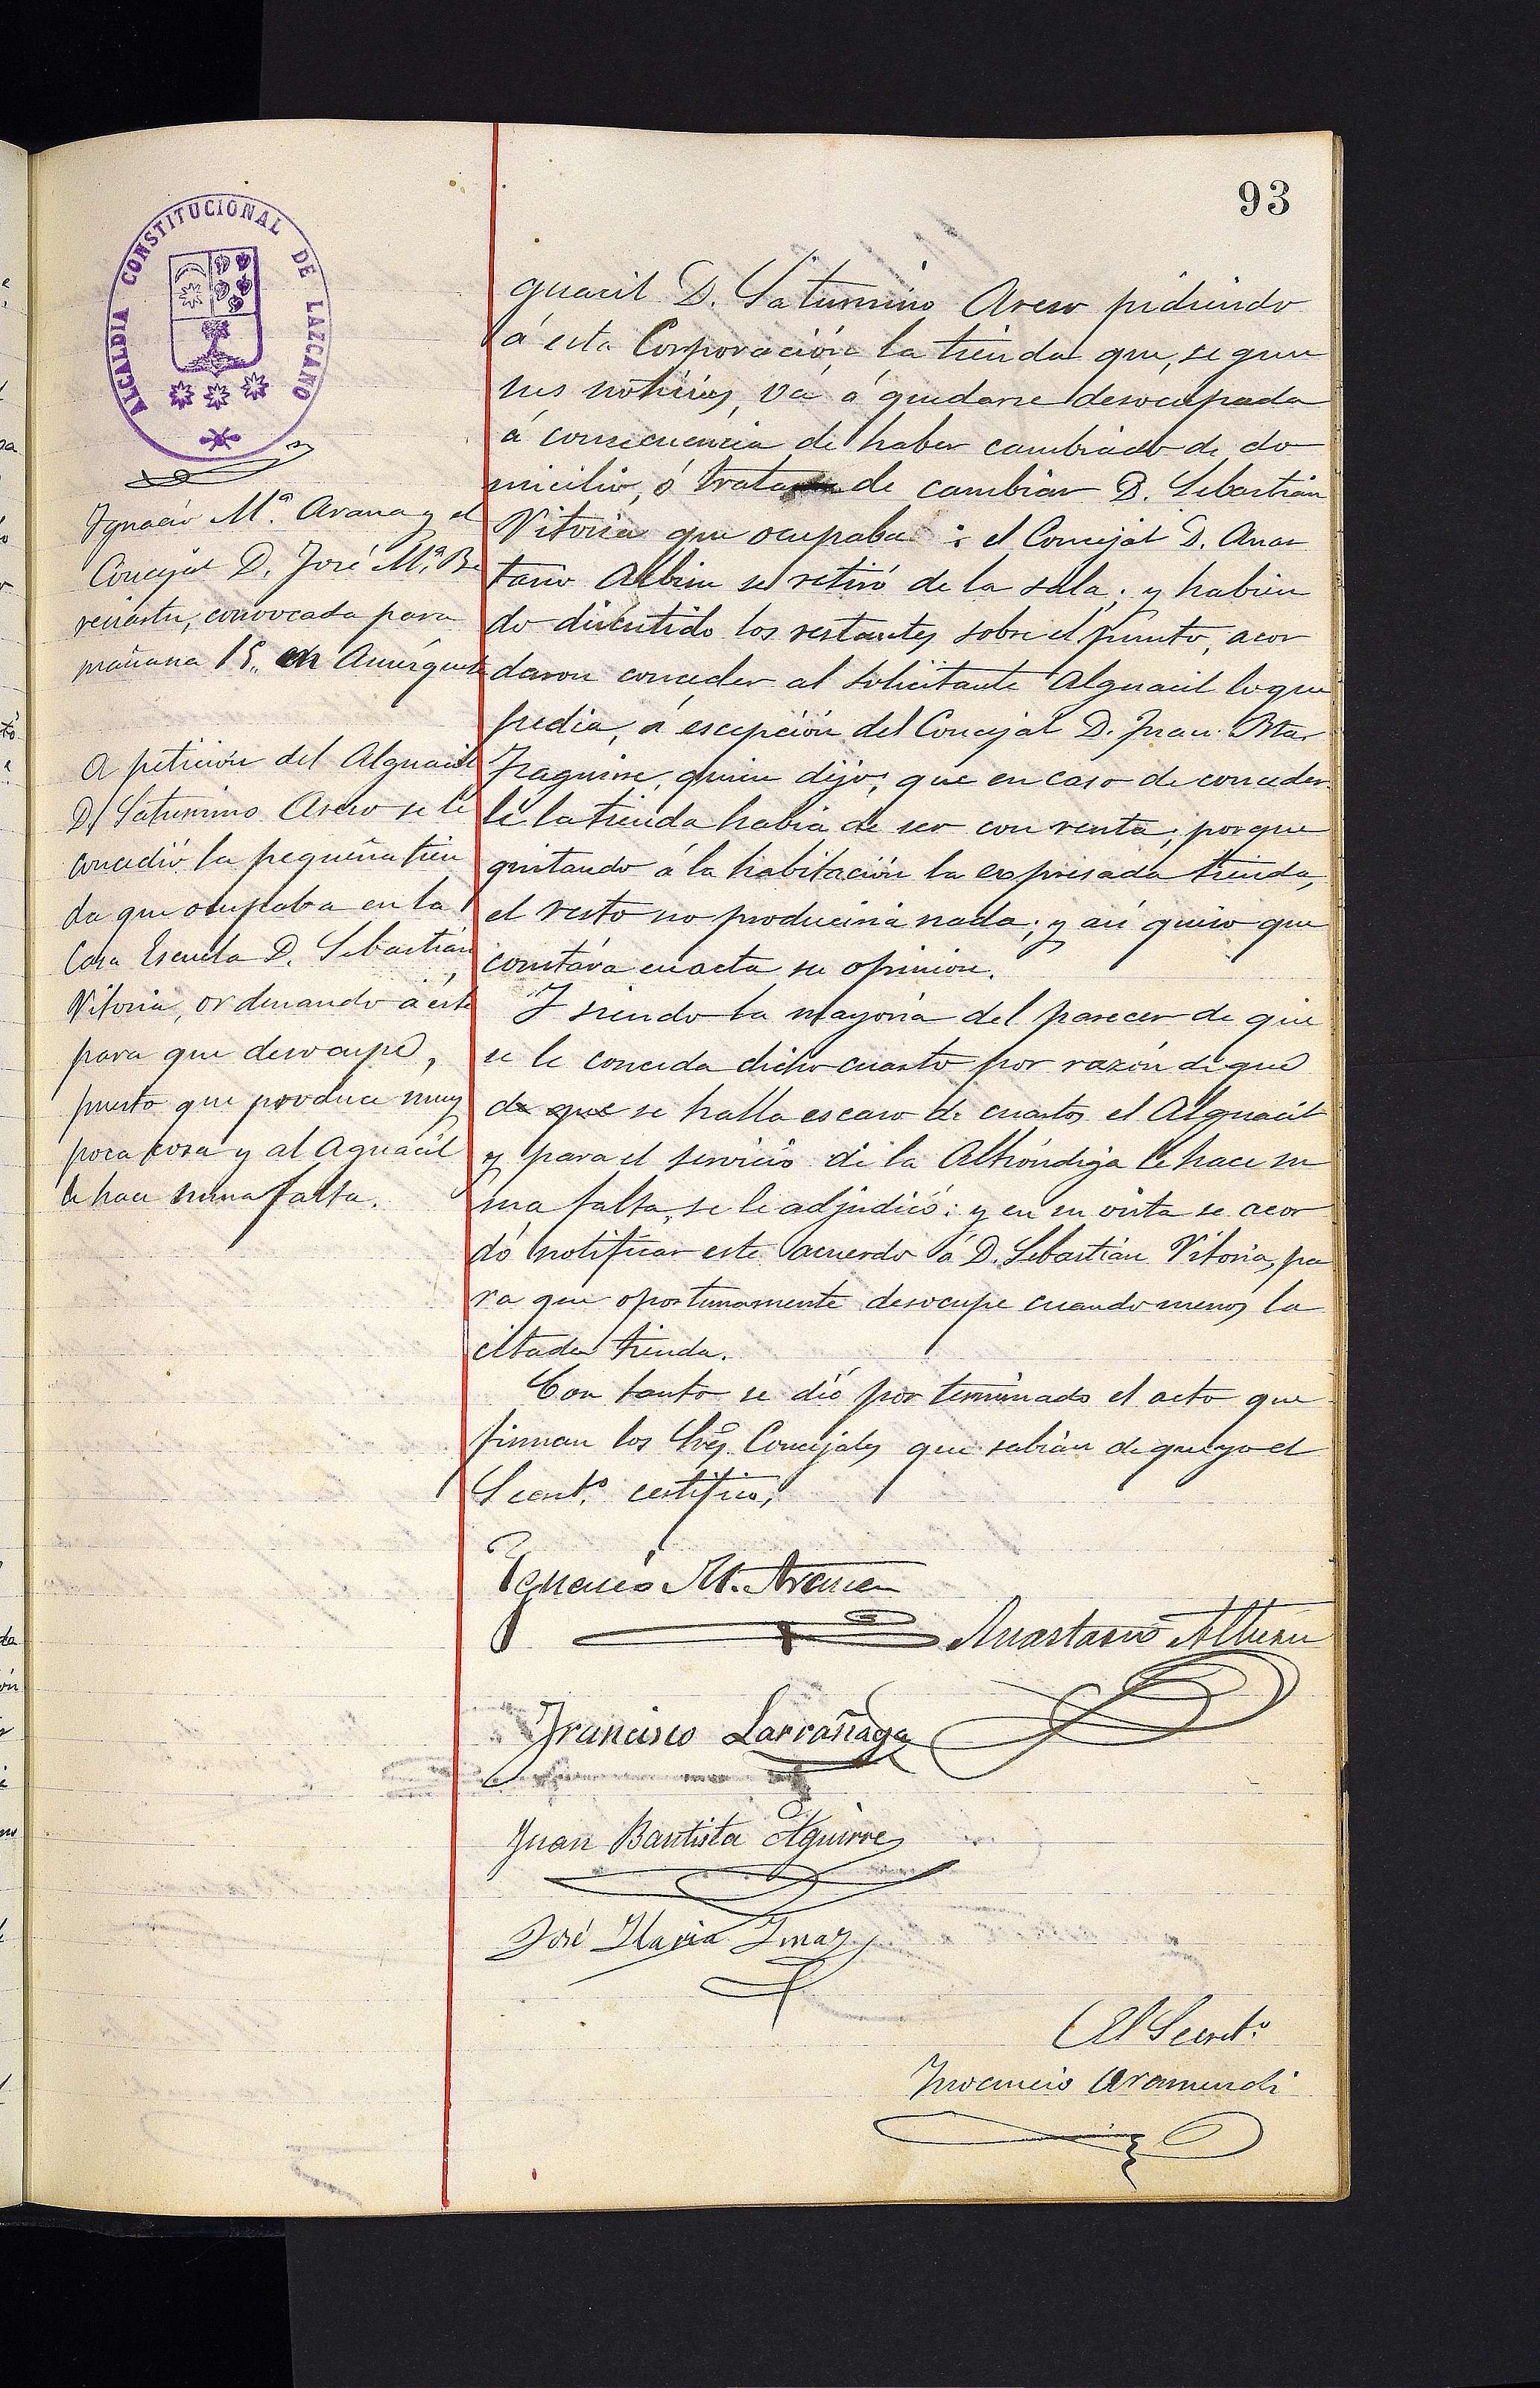 93
ALCALDIA CONSTITUCIONAL DE LAZCANO
Ignacio Mª. Arana y el
Concejal D. José Mª. Be
reciartu, convocada para
mañana 15. en
A petición del Alguacil
D. Saturnino Areso se le
concedió la pequeña tien
da que ocupaba en la
Casa Escuela D. Sebastián
Vitoria, ordenando á éste
para que desocupe,
puesto que produce muy
poca cosa y al Aguacil
le hace suma falta.
guacil D. Saturnino Areso pidiendo
á esta Corporación la tienda que, segun
sus noticias, vá á quedarse desocupada
á consecuencia de haber cambiado de do
micilio, ó trata de cambiar D. Sebastián
Vitoria que ocupaba: el Concejal D. Anas
tasio Altuna se retiró de la sala; y habien
do discutido los restantes sobre el punto, acor
daron conceder al solicitante Alguacil lo que
pedia, á escepción del Concejal D. Juan Bta.
Izaguirre, quien dijo; que en caso de conceder
le la tienda habia de ser con renta; porque
quitando á la habitación la expresada tienda,
el resto no produciria nada; y asi quiso que
constára en acta su opinion.
Y siendo la mayoria del parecer de que
se le conceda dicho cuarto por razón de que
de que se halla escaso de cuartos el Alguacil
y para el servicio de la Alhóndiga le hace su
ma falta, se le adjudicó: y en su vista se acor
dó notificar este acuerdo á D. Sebastián Vitoria, pa
ra que oportunamente desocupe cuando menos la
citada tienda.
Con tanto se dió por terminado el acto que
firman los Sres. Concejales que sabian de que yo el
Secretº. certifico,
Ignacio M. Arana
Anastasio Altuna
Francisco Larrañaga
Juan Bautista Izguirre
José Maria Imaz
El Secretº.
Inocencio Aramendi